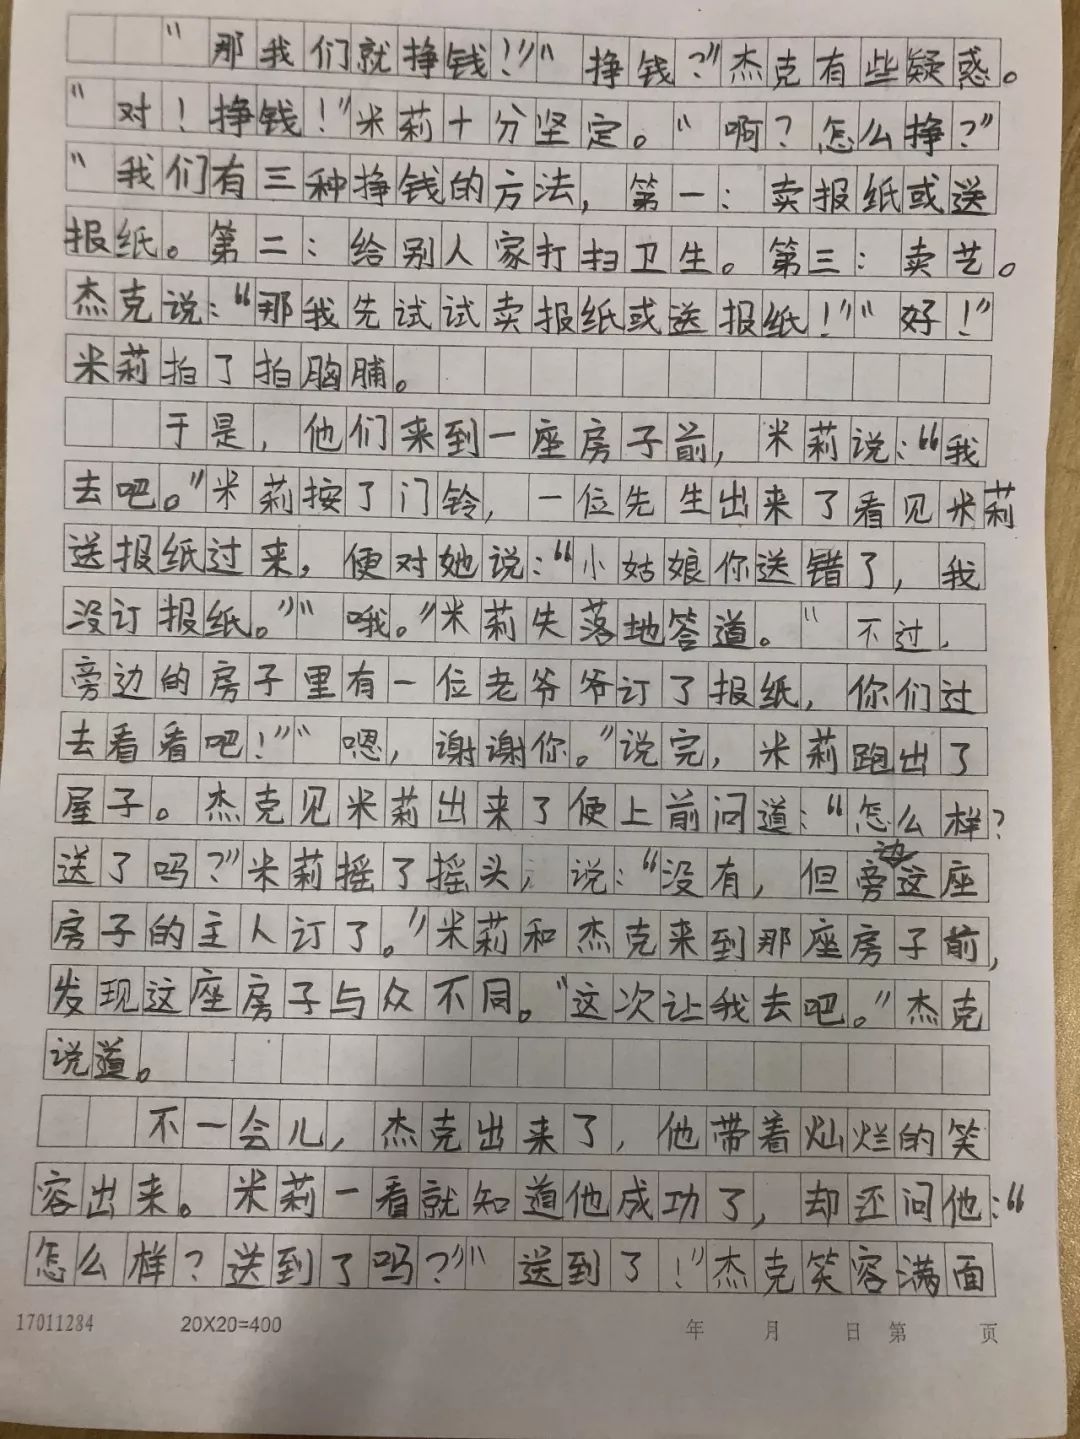 “那我们就挣钱！”“挣钱？”杰克有些疑惑。
“对！挣钱！”米莉十分坚定。“啊？怎么挣？”
“我们有三种挣钱的方法，第一：卖报纸或送
报纸。第二：给别人家打扫卫生。第三：卖艺。
杰克说：“那我先试试卖报纸或送报纸！”“好！”
米莉拍了拍胸脯。
于是，他们来到一座房子前，米莉说：“我
去吧。”米莉按了门铃，一位先生出来了看见米莉
送报纸过来，便对她说：“小姑娘你送错了，我
没订报纸。”“哦。”米莉失落地答道。“不过，
旁边的房子里有一位老爷爷订了报纸，你们过
去看看吧！”“嗯，谢谢你。”说完，米莉跑出了
屋子。杰克见米莉出来了便上前问道：“怎么样？
送了吗？”米莉摇了摇头，说：“没有，但旁边这座
房子的主人订了。”米莉和杰克来到那座房子前，
发现这座房子与众不同。“这次让我去吧。”杰克
说道。
不一会儿，杰克出来了，他带着灿烂的笑
容出来。米莉一看就知道他成功了，却还问他：“
怎么样？送到了吗？”“送到了！”杰克笑容满面
17011284 20X20=400 年 月 日 第 页